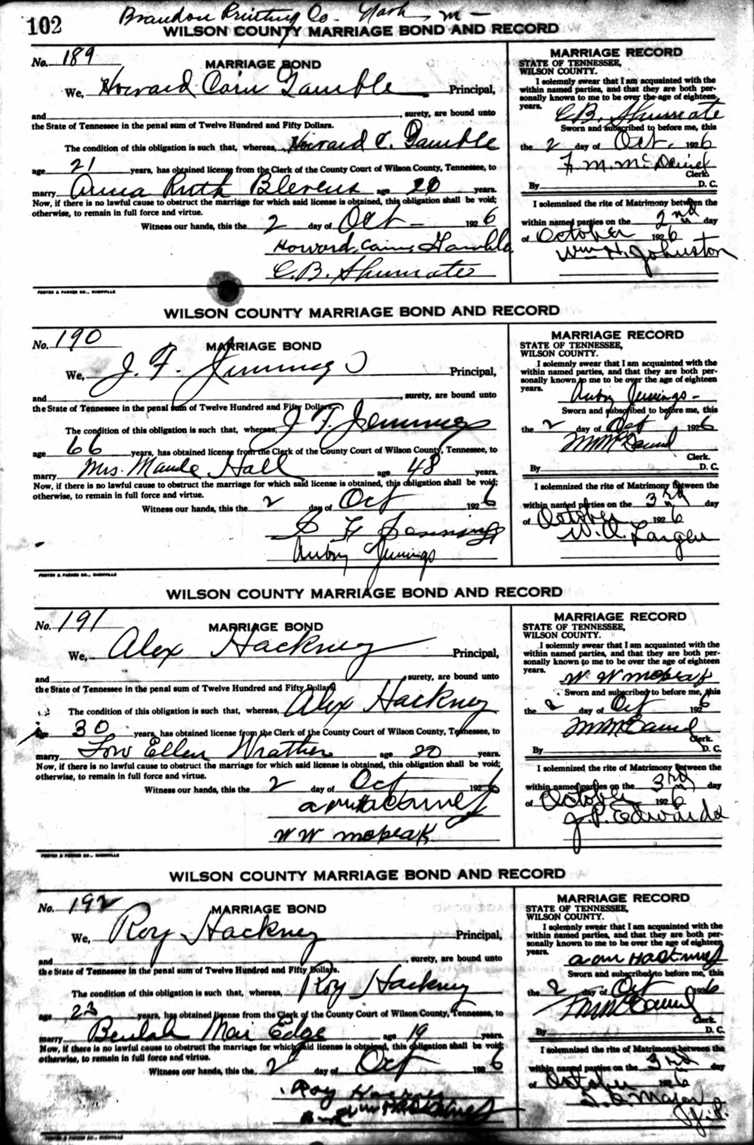 102
Brandon Printing Co. Nash
WILSON COUNTY MARRIAGE BOND AND RECORD
No. 189 MARRIAGE BOND
We, Howard Cain Gamble Principal,
and surety, are bound unto
the State of Tennessee in the penal sum of Twelve Hundred and Fifty Dollars.
The condition of this obligation is such that, whereas, Howard C. Gamble
age 21 years, has obtained license from the Clerk of the County Court of Wilson County, Tennessee, to
marry Anna Ruth Blevens age 20 years.
Now, if there is no lawful cause to obstruct the marriage for which said license is obtained, this obligation shall be void;
otherwise, to remain in full force and virtue.
Witness our hands, this the 2 day of Oct 1926
Howard Cain Gamble
C.B. Shumate
FOSTER & PARKES CO., NASHVILLE
MARRIAGE RECORD
STATE OF TENNESSEE,
WILSON COUNTY.
I solemnly swear that I am acquainted with the
within named parties, and that they are both per-
sonally known to me to be over the age of eighteen
years.
C.B. Shumate
Sworn and subscribed to before me, this
the 2 day of Oct. 1926
F. M. McDaniel
Clerk.
By D. C.
I solemnized the rite of Matrimony between the
within named parties on the 2nd day
of October 1926
Wm H. Johnston
WILSON COUNTY MARRIAGE BOND AND RECORD
No. 190 MARRIAGE BOND
We, J. F. Jennings Principal,
and surety, are bound unto
the State of Tennessee in the penal sum of Twelve Hundred and Fifty Dollars.
The condition of this obligation is such that, whereas, J. F. Jennings
age 66 years, has obtained license from the Clerk of the County Court of Wilson County, Tennessee, to
marry Mrs. Maude Hall age 48 years.
Now, if there is no lawful cause to obstruct the marriage for which said license is obtained, this obligation shall be void;
otherwise, to remain in full force and virtue.
Witness our hands, this the 2 day of Oct 1926
F Jennings
Aubry Jennings
FOSTER & PARKES CO., NASHVILLE
MARRIAGE RECORD
STATE OF TENNESSEE,
WILSON COUNTY.
I solemnly swear that I am acquainted with the
within named parties, and that they are both per-
sonally known to me to be over the age of eighteen
years.
Aubry Jennings
Sworn and subscribed to before me, this
the 2 day of Oct 1926
McDaniel
Clerk.
By D. C.
I solemnized the rite of Matrimony between the
within named parties on the 3rd day
of October 1926
W. A.
WILSON COUNTY MARRIAGE BOND AND RECORD
No. 191 MARRIAGE BOND
We, Alex Hackney Principal,
and surety, are bound unto
the State of Tennessee in the penal sum of Twelve Hundred and Fifty Dollars.
The condition of this obligation is such that, whereas, Alex Hackney
age 30 years, has obtained license from the Clerk of the County Court of Wilson County, Tennessee, to
marry Lou Ellen Wrather age 20 years.
Now, if there is no lawful cause to obstruct the marriage for which said license is obtained, this obligation shall be void;
otherwise, to remain in full force and virtue.
Witness our hands, this the 2 day of Oct 1926
W W McPeak
FOSTER & PARKES CO., NASHVILLE
MARRIAGE RECORD
STATE OF TENNESSEE,
WILSON COUNTY.
I solemnly swear that I am acquainted with the
within named parties, and that they are both per-
sonally known to me to be over the age of eighteen
years.
W W McPeak
Sworn and subscribed to before me, this
the 2 day of Oct 1926
McDaniel
Clerk.
By D. C.
I solemnized the rite of Matrimony between the
within named parties on the 3rd day
of October 1926
J. P. Edwards
WILSON COUNTY MARRIAGE BOND AND RECORD
No. 192 MARRIAGE BOND
We, Roy Hackney Principal,
and surety, are bound unto
the State of Tennessee in the penal sum of Twelve Hundred and Fifty Dollars.
The condition of this obligation is such that, whereas, Roy Hackney
age 23 years, has obtained license from the Clerk of the County Court of Wilson County, Tennessee, to
marry Beulah Mai Edge age 19 years.
Now, if there is no lawful cause to obstruct the marriage for which said license is obtained, this obligation shall be void;
otherwise, to remain in full force and virtue.
Witness our hands, this the 2 day of Oct 1926
Roy
MARRIAGE RECORD
STATE OF TENNESSEE,
WILSON COUNTY.
I solemnly swear that I am acquainted with the
within named parties, and that they are both per-
sonally known to me to be over the age of eighteen
years.
Hackney
Sworn and subscribed to before me, this
the 2 day of Oct 1926
McDaniel
Clerk.
By D. C.
I solemnized the rite of Matrimony between the
within named parties on the 3rd day
of October 1926
J.P.